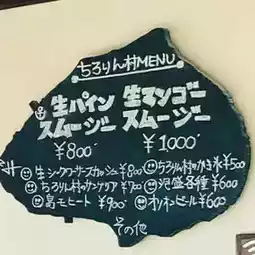 ちろりん村MENU
生パイン 生マンゴー
スムージー スムージー
¥800 ¥1000
生シークワーサースカッシュ¥800 ちろりん村のかき氷¥500
ちろりん村のサングリア¥700 泡盛各種¥600
島モヒート¥900 オリオンビール¥600
その他